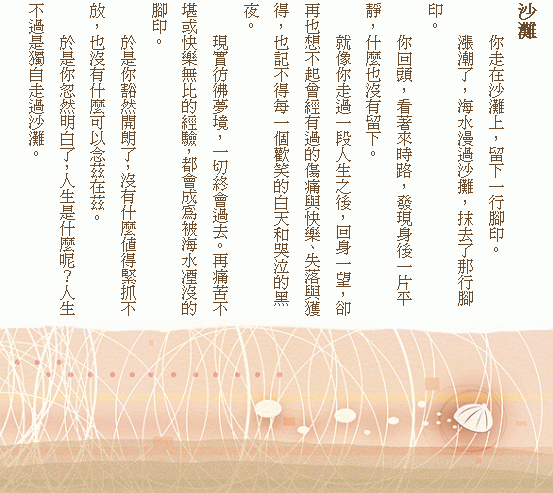 沙灘
你走在沙灘上，留下一行腳印。
漲潮了，海水漫過沙灘，抹去了那行腳
印。
你回頭，看著來時路，發現身後一片平
靜，什麼也沒有留下。
就像你走過一段人生之後，回身一望，卻
再也想不起曾經有過的傷痛與快樂、失落與獲
得，也記不得每一個歡笑的白天和哭泣的黑
夜。
現實彷彿夢境，一切終會過去。再痛苦不
堪或快樂無比的經驗，都會成為被海水湮沒的
腳印。
於是你豁然開朗了，沒有什麼值得緊抓不
放，也沒有什麼可以念茲在茲。
於是你忽然明白了，人生是什麼呢？人生
不過是獨自走過沙灘。